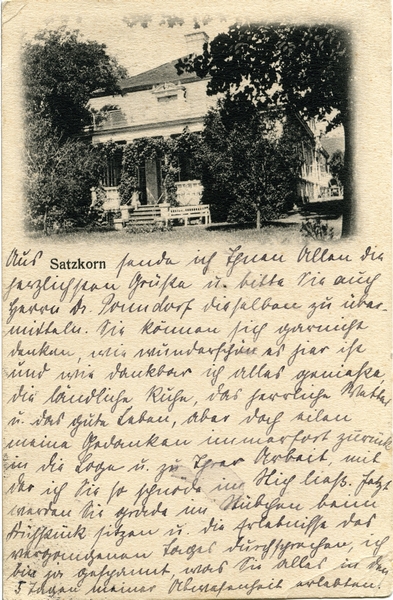 Aus Satzkorn sende ich Ihnen Allen die
herzlichsten Grüße u. bitte Sie auch
Herrn Dr. Sonndorf dieselben zu über-
mitteln. Sie können sich garnicht
denken, wie wunderschön es hier ist
und wie dankbar ich alles genieße
die ländliche Ruhe, das herrliche Wetter
u. das gute Leben, aber doch eilen
meine Gedanken immerfort zurück
in die Loge u. zu Ihrer Arbeit, mit
der ich Sie so schnöde im Stich ließ. Jetzt
werden Sie grade im Stübchen beim
Frühstück sitzen u. die Erlebnisse des
vergangenen Tages durchsprechen, ich
bin ja gespannt, was Sie Alles in den
5 Tagen meiner Abwesenheit erlebten.